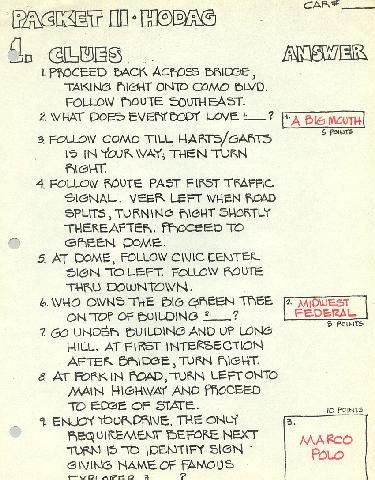 CAR#
PACKET II · HODAG
1. CLUES ANSWER
1. PROCEED BACK ACROSS BRIDGE,
TAKING RIGHT ONTO COMO BLVD.
FOLLOW ROUTE SOUTHEAST.
2. WHAT DOES EVERYBODY LOVE 1. ?
1. A BIG MOUTH
5 POINTS
3. FOLLOW COMO TILL HARTS/GARTS
IS IN YOUR WAY; THEN TURN
RIGHT.
4. FOLLOW ROUTE PAST FIRST TRAFFIC
SIGNAL. VEER LEFT WHEN ROAD
SPLITS, TURNING RIGHT SHORTLY
THEREAFTER. PROCEED TO
GREEN DOME.
5. AT DOME, FOLLOW CIVIC CENTER
SIGN TO LEFT. FOLLOW ROUTE
THRU DOWNTOWN.
6. WHO OWNS THE BIG GREEN TREE
ON TOP OF BUILDING 2. ?
2. MIDWEST
FEDERAL
5 POINTS
7. GO UNDER BUILDING AND UP LONG
HILL. AT FIRST INTERSECTION
AFTER BRIDGE, TURN RIGHT.
8. AT FORK IN ROAD, TURN LEFT ONTO
MAIN HIGHWAY AND PROCEED
TO EDGE OF STATE.
10 POINTS
9. ENJOY YOUR DRIVE. THE ONLY
REQUIREMENT BEFORE NEXT
TURN IS TO IDENTIFY SIGN
GIVING NAME OF FAMOUS
EXPLORER 3. ?
3.
MARCO
POLO